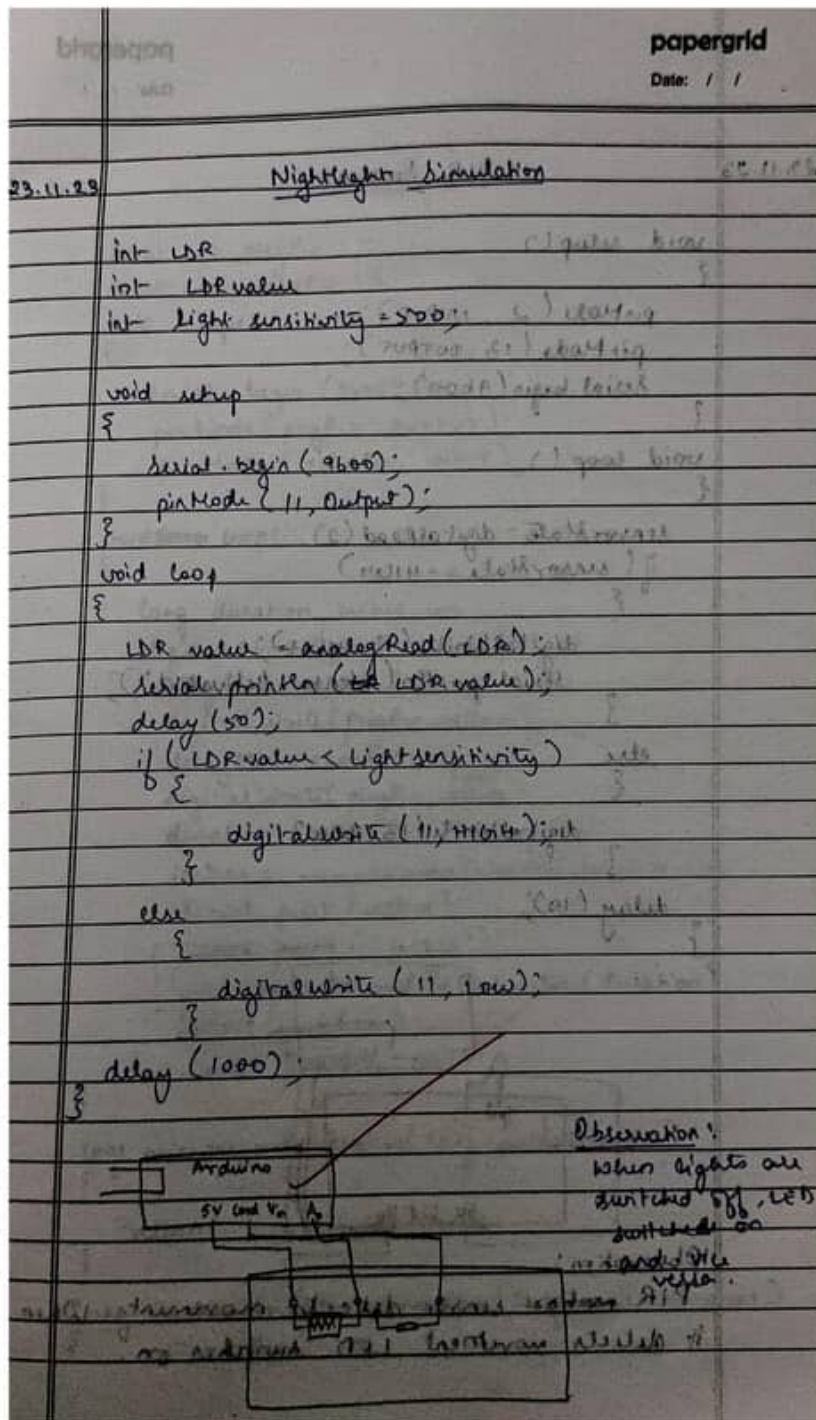 papergrid
Date: / /
23.11.23
Nightlight Simulation
int LDR
int LDR value
int light sensitivity = 500;
void setup
{
serial.begin(9600);
pinMode(11, Output);
}
void loop
{
LDR value = analogRead(LDR);
serial.println(LDR value);
delay(50);
if (LDR value < Lightsensitivity)
{
digitalwrite(11, HIGH);
}
else
{
digitalwrite(11, low);
}
delay(1000);
}
Arduino
5V Gnd Vin A0
Observation:
when lights are
switched off, LED
switched on
and vice
versa.